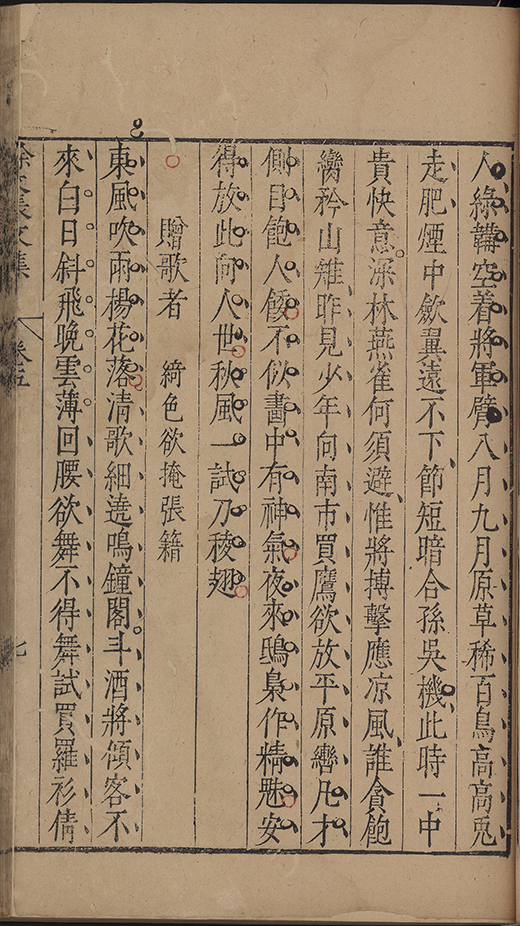 人綠韝空着將軍臂八月九月原草稀百鳥高高兎
走肥煙中歛翼遠不下節短暗合孫吳機此時一中
貴快意深林燕雀何須避惟將搏擊應凉風誰貪飽
臠矜山雉昨見少年向南市買鷹欲放平原轡凡才
側目飽人餧不似畫中有神氣夜來鴟梟作精魅安
得放此向人世秋風一試刀稜翅
贈歌者 綺色欲掩張籍
東風吹雨楊花落清歌細遶鳴鐘閣斗酒將傾客不
來白日斜飛晚雲薄回腰欲舞不得舞試買羅衫倩
徐文長文集 卷五 七